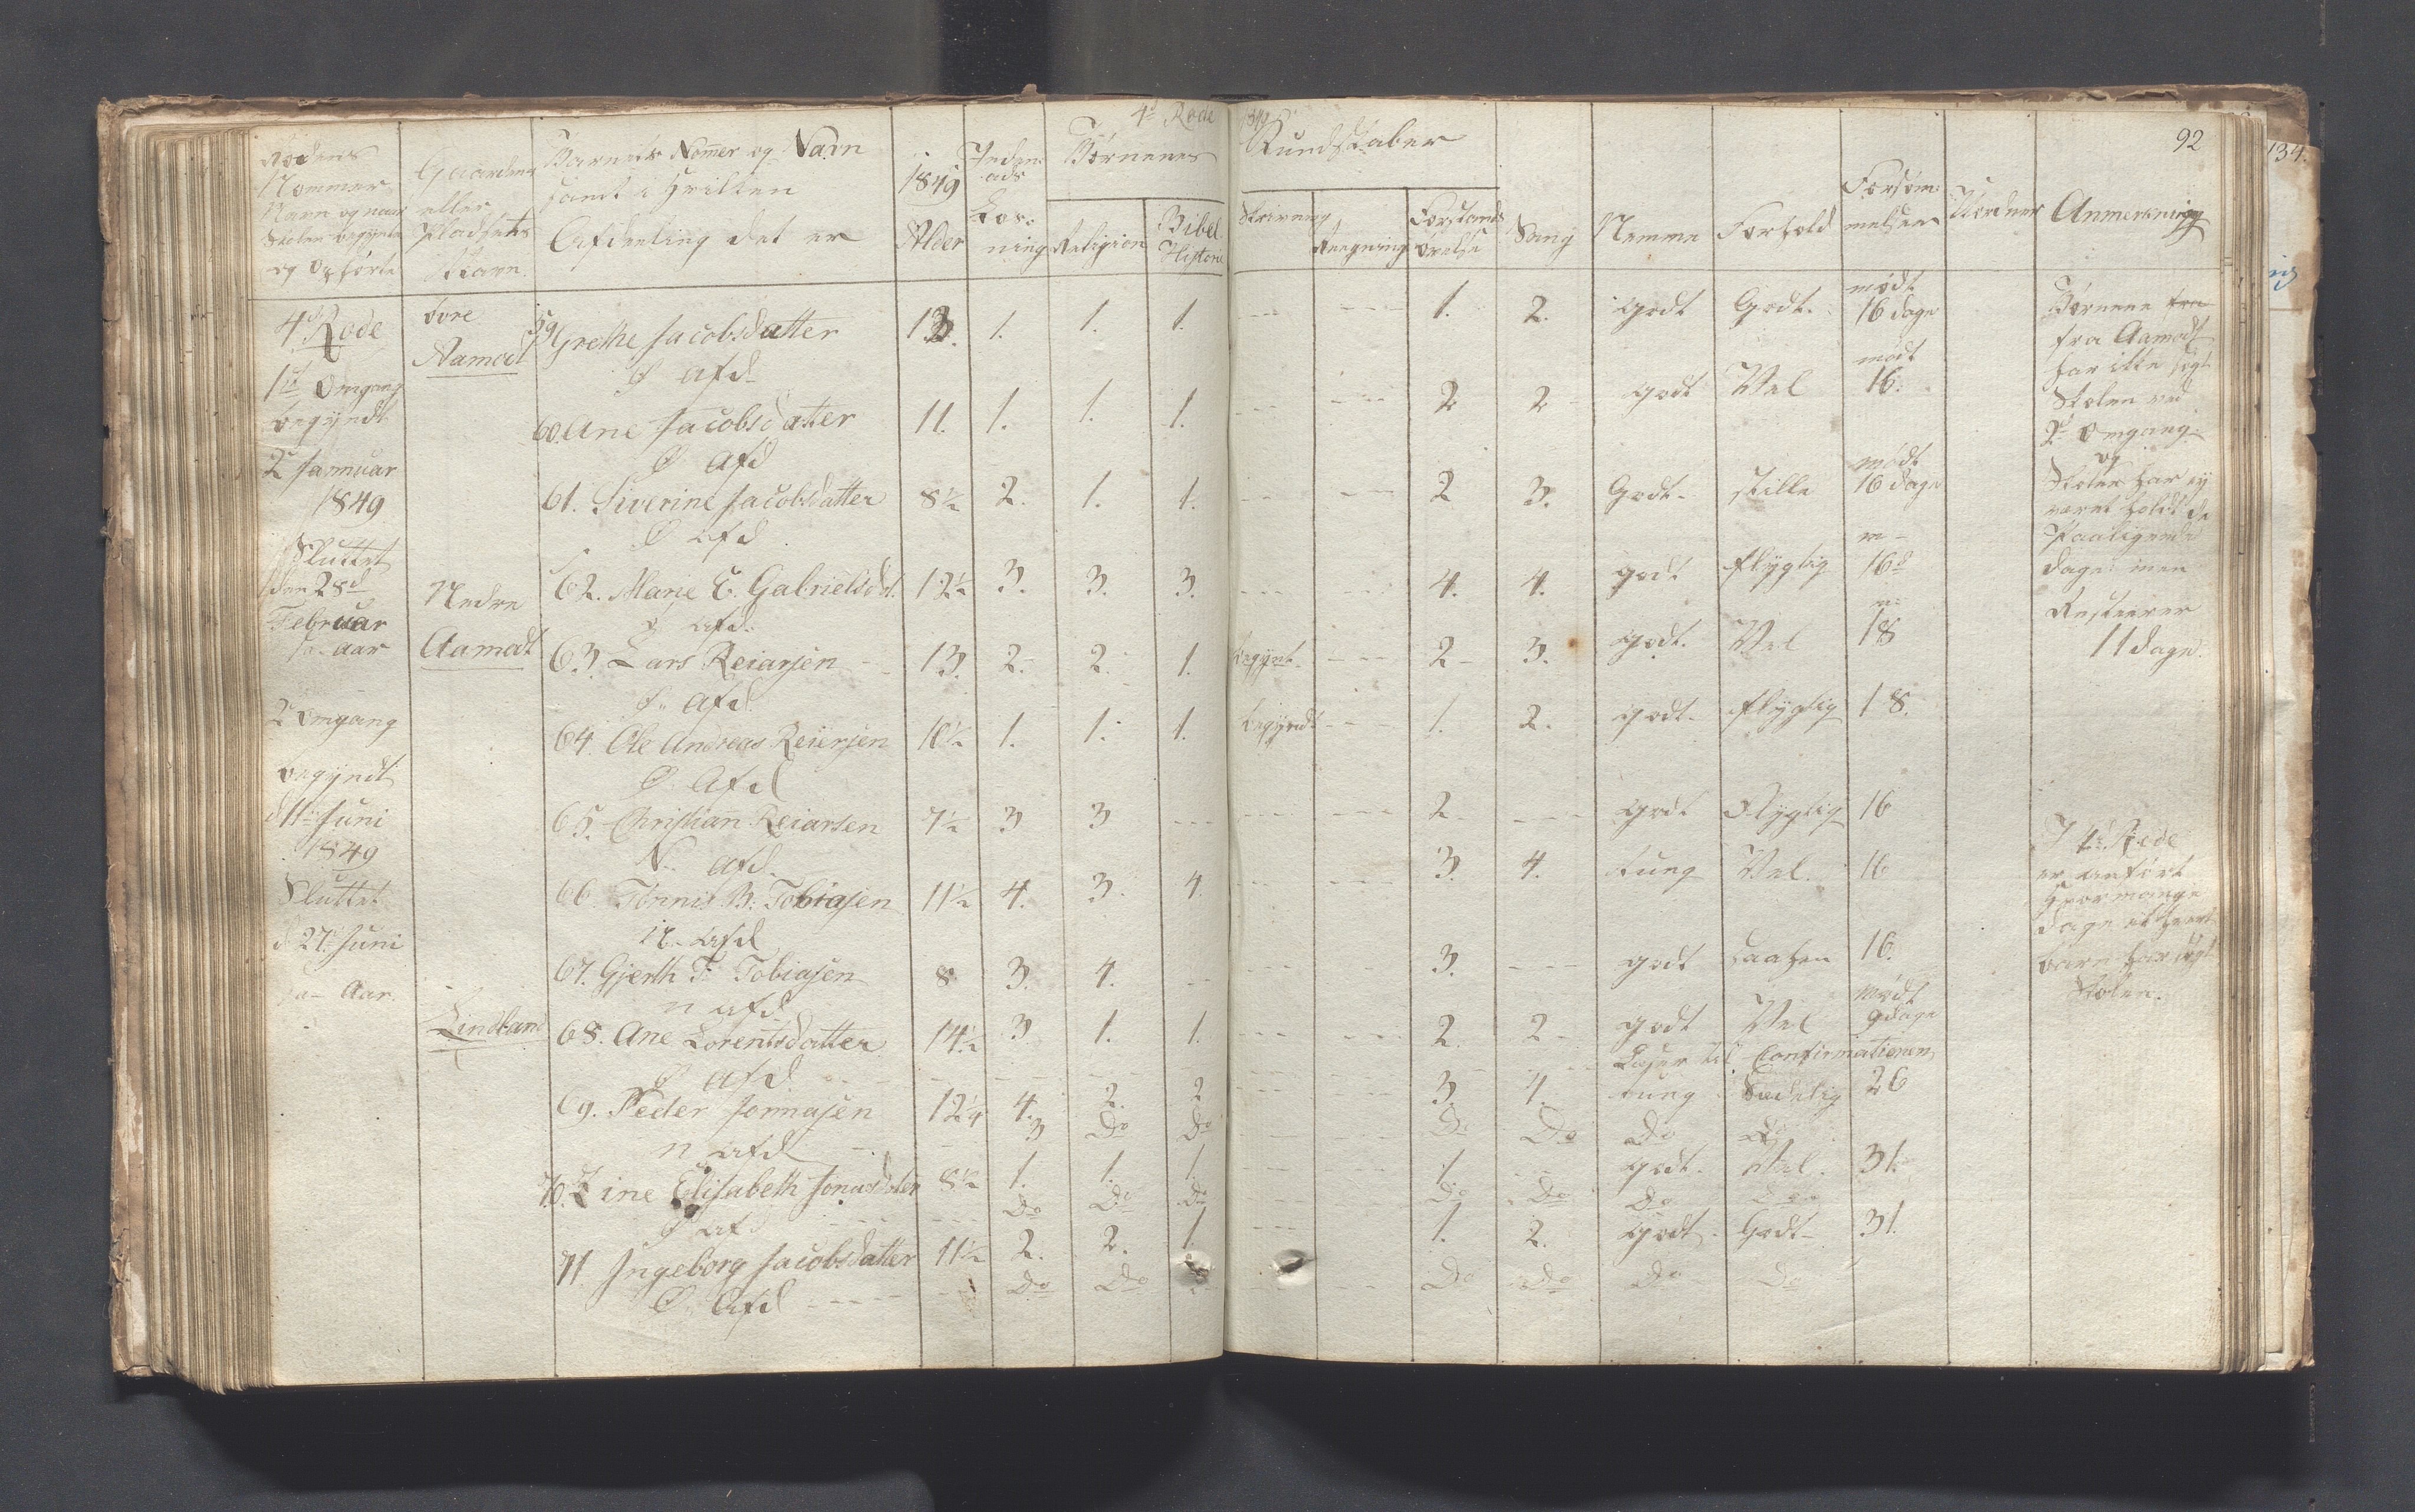 4de Rode 1849
92
134.
Rodens
Nommer
Navn og naar
Skolen begynte
og ophørte
Gaardens
eller
Pladsens
Navn.
Barnets Nomer og Navn
samt i hvilken
Afdeeling det er
1849
Alder
Inden-
ads
Læs-
ning
Børnenes Kundskaber
Religion
Bibel
Historie
Skrivning
Reegning
Forstands
øvelse
Sang
Nemme
Forhold
Forsøm-
melser
Anmerkning
4de Rode
1ste Omgang
begyndt
2 Januar
1849
Sluttet
den 28de
Februar
s. Aar
2 Omgang
begyndt
d 11te Juni
1849
Sluttet
d 27. Juni
s. a. Aar.
Øvre
Aamodt
59 Grethe Jacobsdatter 13. 1. 1. 1. --- --- 1. 2. godt Godt. mødt 16 dage
Ø afd
60. Ane Jacobsdatter 11. 1. 1. 1. --- --- 2 2 - godt Vel mødt 16.
Ø Afd
61. Siverine Jacobsdatter 8½ 2. 1. 1. -- --- 2 3. Godt- stille mødt 16 dage
Ø Afd
Nedre
Aamodt
62. Marie E. Gabrielsdt. 12½ 3. 3. 3. --- --- 4. 4. godt flygtig m- 16d
Ø Afd.
63. Lars Reiarsen 13. 2. 2. 1. begynt. --- 2 - 3. godt. Vel m. 18
Ø. Afd.
64. Ole Andreas Reiersen 10½ 1. 1. 1. begyndt --- 1. 2. godt- flygtig 18.
Ø. Afd
65. Christian Reiarsen 7½ 3 3 --- --- --- 2. --- godt flygtig 16
N. afd.
66. Tønnes B. Tobiasen 11½ 4. 3. 4. --- --- 3. 4. tung Vel. 16
N. Afd
67. Gjerth T. Tobiasen 8 3. 4. -- --- --- 3. --- godt 16.
n afd
Lindland
68. Ane Lorentsdatter 14½ 3 1. 1. --- --- 2. 2 - godt Vel mødt 9 dage
Ø afd. Læser til Confirmationen
69. Peder Jonnasen 12¼ 4. 2. 2 --- --- 3. 4. tung Sædelig 26
n afd 3 Do Do Do Do Do Do
70. Line Elisabeth Jonasdatter 8½ 1. 1. 1. --- --- 1. godt. Vel. 31.
Ø af Do Do Do Do Do Do
71. Ingeborg Jacobsdatter 11½ 2. 2. 1. --- --- 1. 2. godt. Godt- 31.
Ø. Afd ---- Do Do Do Do Do Do
Børnene fra
fra Aamodt
har ikke søgt
Skolen ved
2de Omgang.
og
Skolen har ej
været holdt de
Paaligende
dage men
Resterer
11 dage.
I 4de Rode
er anført
hvormange
dage ethvert
barn har søgt
Skolen.